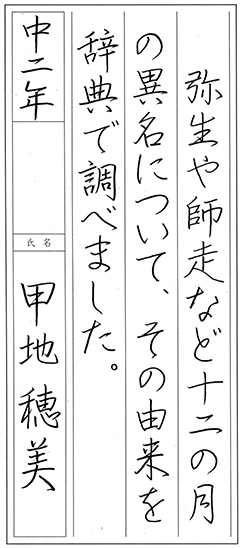 弥生や師走など十二の月
の異名について、その由来を
辞典で調べました。
中二年
氏名
甲地穂美